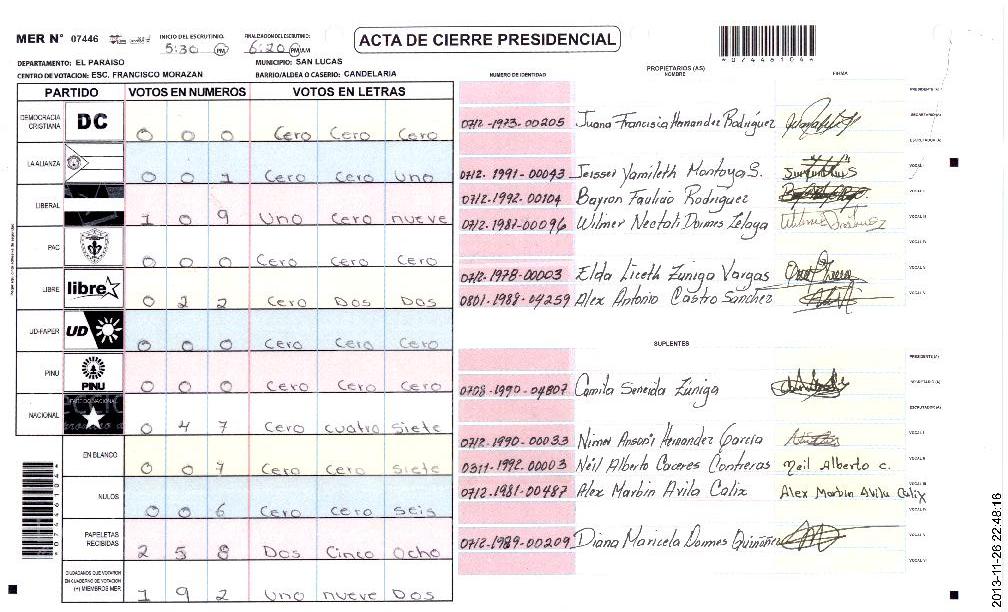 MER N° 07446
INICIO DEL ESCRUTINIO.
5:30 PM
FINALIZACION DEL ESCRUTINIO:
6:20 PM AM
ACTA DE CIERRE PRESIDENCIAL
*07446104*
DEPARTAMENTO: EL PARAISO
MUNICIPIO: SAN LUCAS
CENTRO DE VOTACION: ESC. FRANCISCO MORAZAN
BARRIO/ALDEA O CASERIO: CANDELARIA
PARTIDO VOTOS EN NUMEROS VOTOS EN LETRAS
DEMOCRACIA CRISTIANA DC 0 0 0 Cero Cero Cero
LA ALIANZA 0 0 1 Cero Cero Uno
LIBERAL 1 0 9 Uno Cero nueve
PAC 0 0 0 Cero Cero Cero
LIBRE libre 0 2 2 Cero Dos Dos
UD-FAPER UD 0 0 0 Cero Cero Cero
PINU PINU 0 0 0 Cero Cero Cero
NACIONAL 0 4 7 Cero cuatro siete
EN BLANCO 0 0 7 Cero Cero siete
NULOS 0 0 6 Cero Cero seis
PAPELETAS RECIBIDAS 2 5 8 Dos Cinco Ocho
CIUDADANOS QUE VOTARON EN CUADERNO DE VOTACION (+) MIEMBROS MER 1 9 2 uno nueve Dos
NUMERO DE IDENTIDAD
PROPIETARIOS (AS)
NOMBRE
FIRMA
PRESIDENTE (A)
SECRETARIO (A)
0712-1973-00205 Juana Francisca Hernandez Rodriguez
ESCRUTADOR (A)
0712-1991-00043 Jeissel Yamileth Montoya S. VOCAL I
0712-1992-00104 Bayron Faulicio Rodriguez VOCAL II
0712-1981-00096 Wilmer Neftali Dormes Zelaya VOCAL III
VOCAL IV
0712-1978-00003 Elda Liceth Zuniga Vargas VOCAL V
0801-1988-04259 Alex Antonio Castro Sanchez VOCAL VI
SUPLENTES
PRESIDENTE (A)
0708-1990-04807 Camila Seneida Zuniga SECRETARIO (A)
ESCRUTADOR (A)
0712-1990-00033 Hernandez Garcia VOCAL I
0311-1992-00003 Neil Alberto Caceres Contreras Neil Alberto c. VOCAL II
0712-1981-00487 Alex Marbin Avila Calix Alex Marbin Avila Calix VOCAL III
VOCAL IV
0712-1989-00209 Diana Maricela Dormes Quinonez VOCAL V
VOCAL VI
*07446104*
2013-11-26 22:48:16